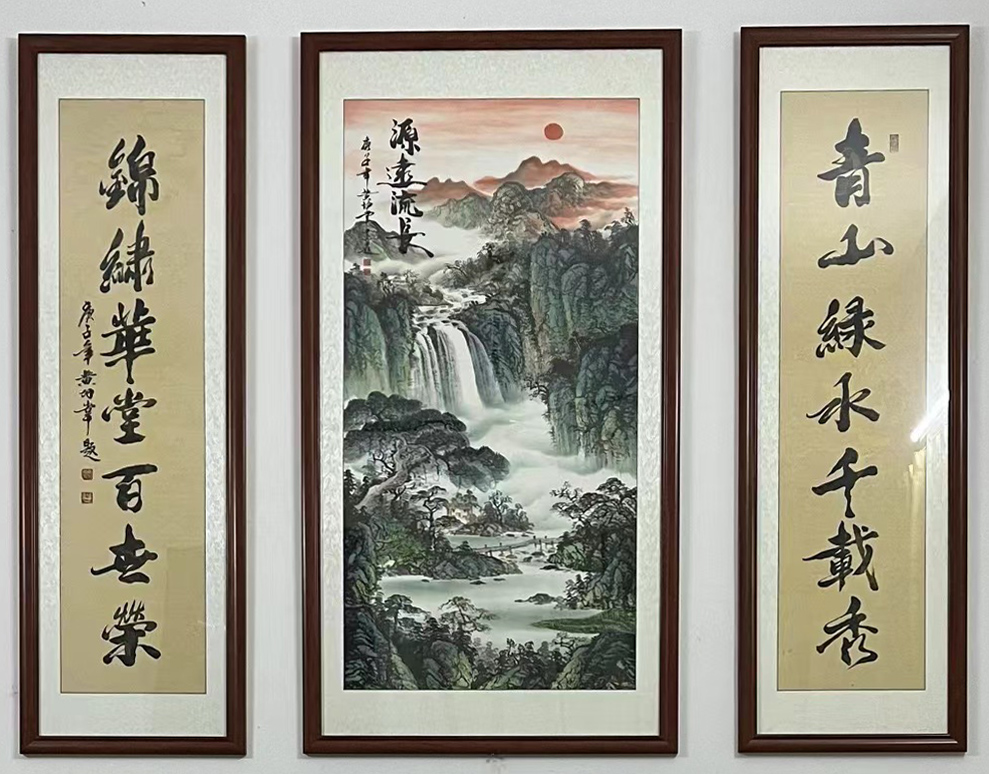 青山緑水千載秀
源遠流長
庚子年
錦繡華堂百世榮
庚子年黄
題